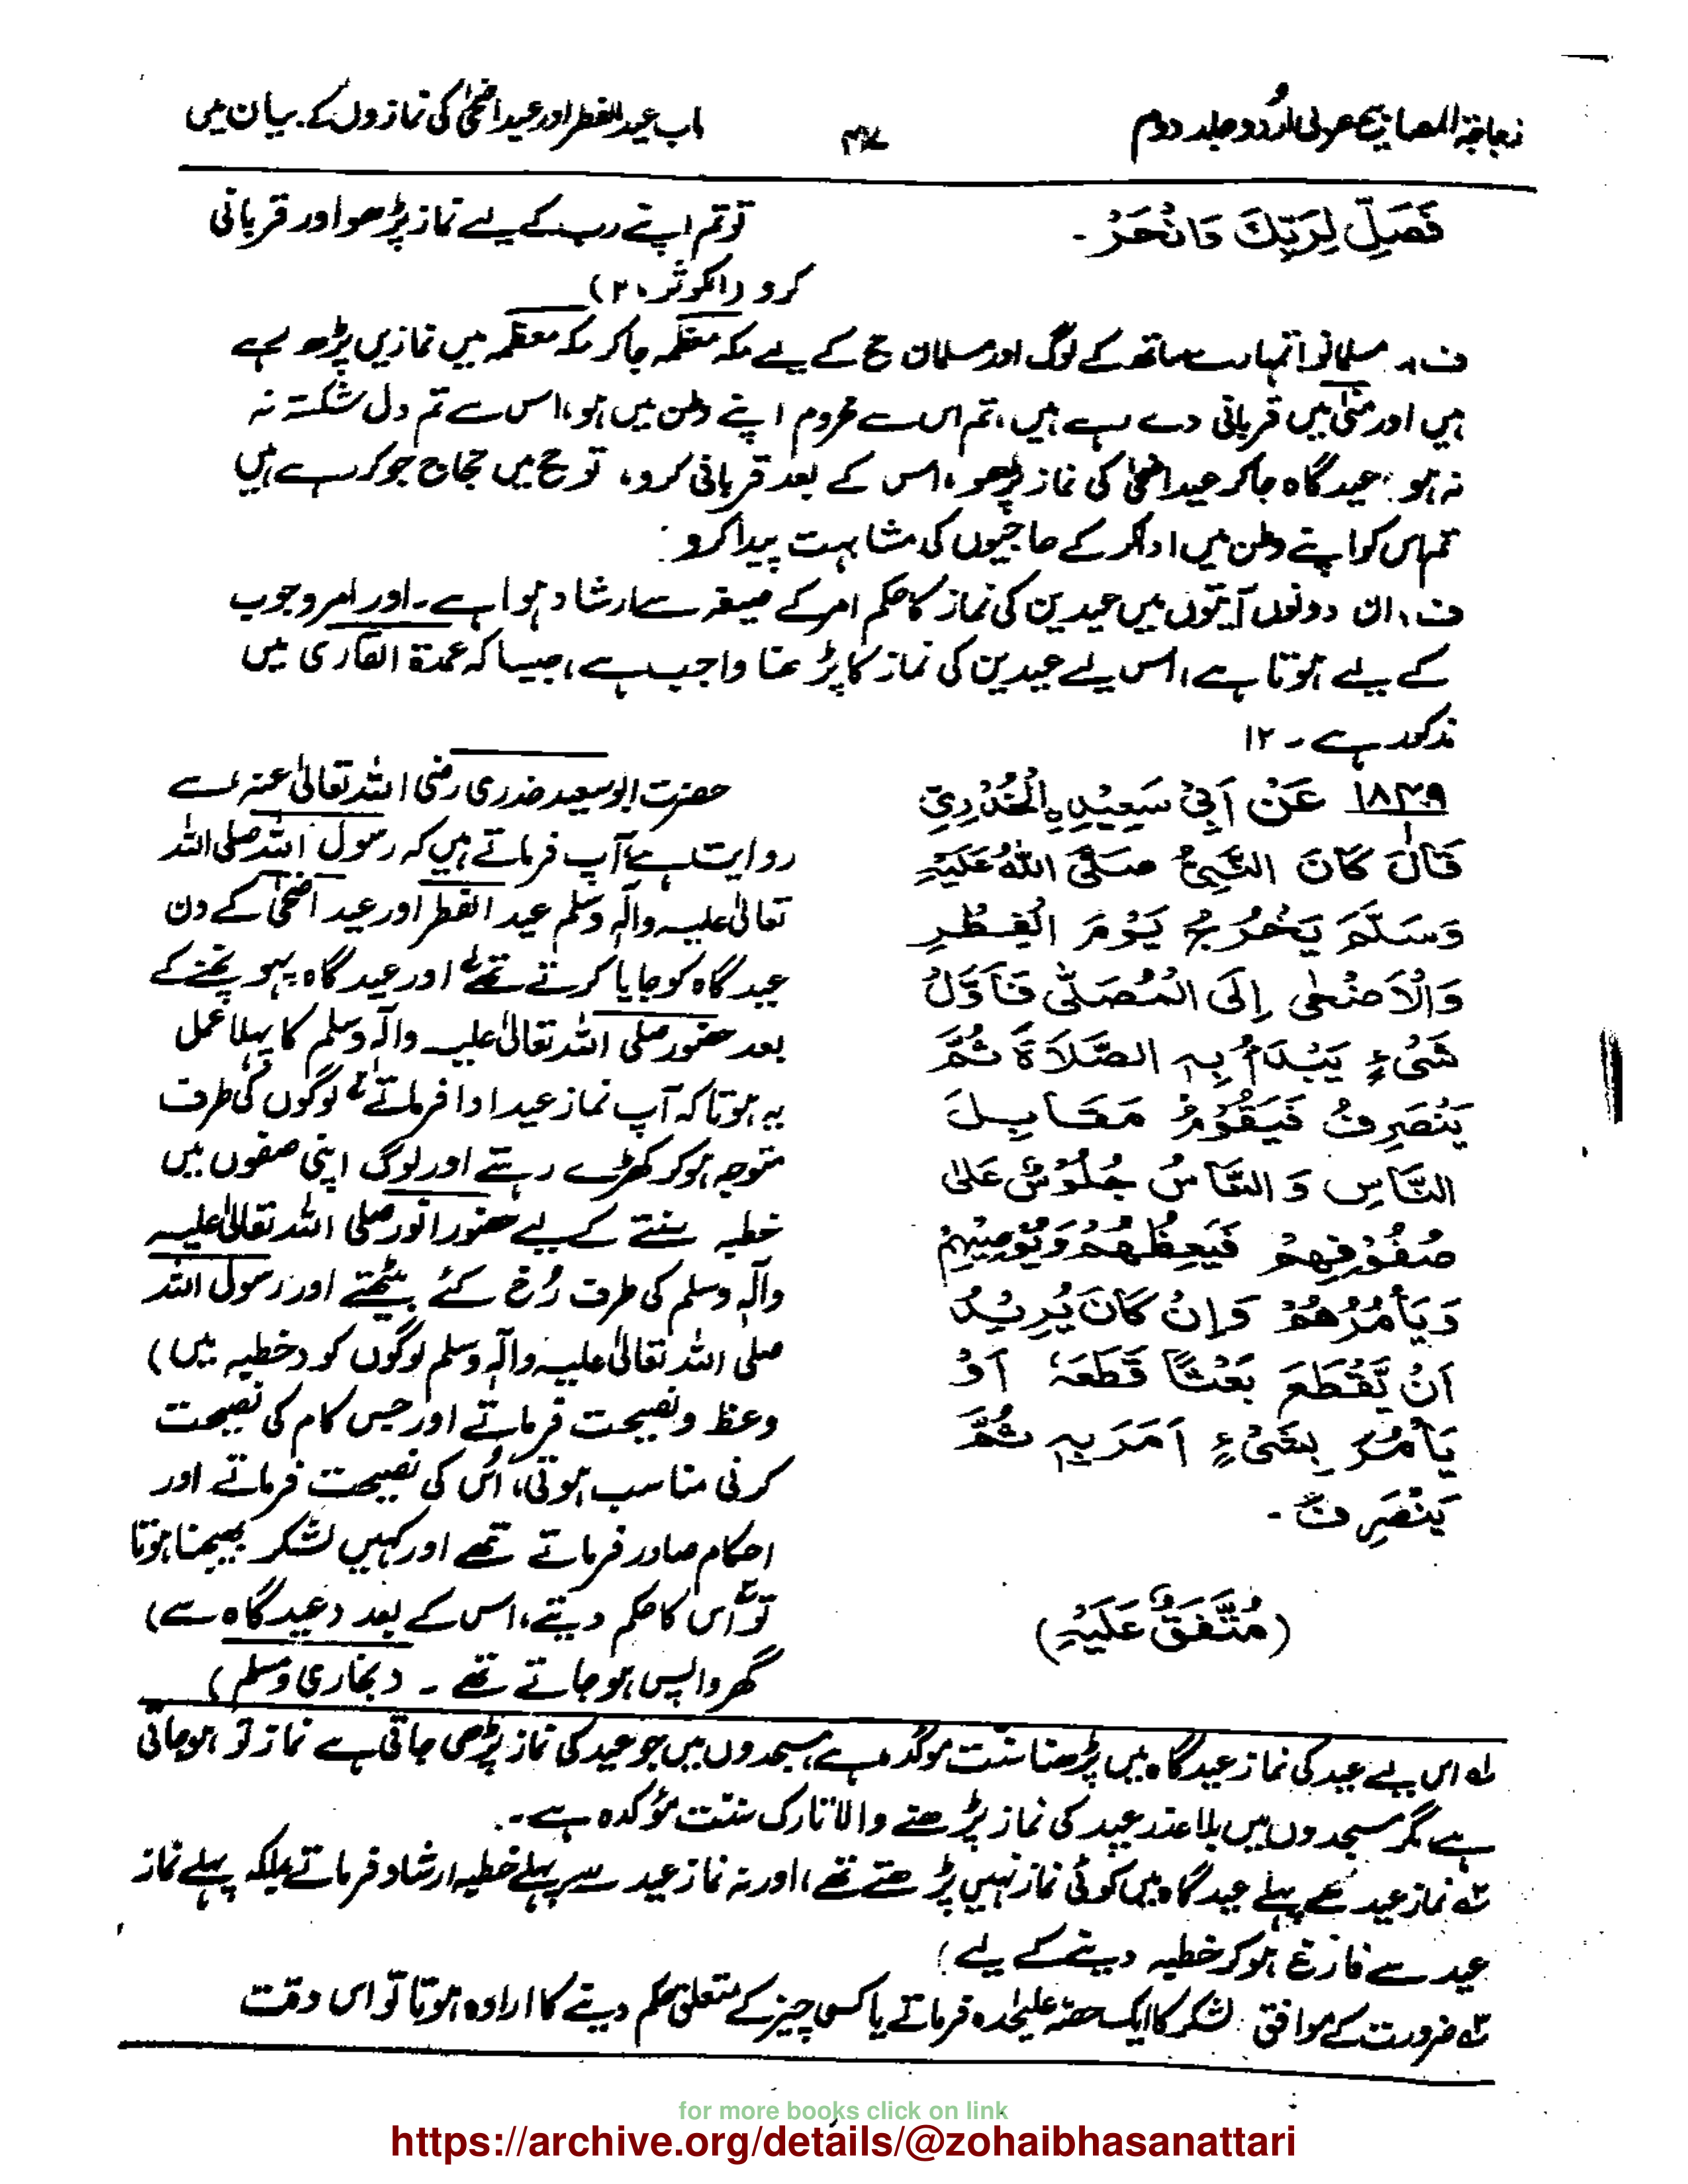 زجاجۃ المصابیح عربی اُردو جلد دوم
۴۷
باب عید الفطر اور عید اضحیٰ کی نمازوں کے بیان میں
فَصَلِّ لِرَبِّكَ وَانْحَرْ -
تو تم اپنے رب کے لیے نماز پڑھو اور قربانی
کرو (الکوثر، ۲)
ف۔ مسلمانو! تمہارے ساتھ کے لوگ اور مسلمان حج کے لیے مکہ معظمہ جا کر مکہ معظمہ میں نمازیں پڑھ رہے
ہیں اور منیٰ میں قربانی دے رہے ہیں، تم اس سے محروم اپنے وطن میں ہو، اس سے تم دل شکستہ نہ
نہ ہو۔ عیدگاہ جا کر عید اضحیٰ کی نماز پڑھو، اس کے بعد قربانی کرو، تو حج میں حجاج جو کر رہے ہیں
تم اس کو اپنے وطن میں ادا کر کے حاجیوں کی مشابہت پیدا کرو۔
ف، ان دونوں آیتوں میں عیدین کی نماز کا حکم امر کے صیغہ سے ارشاد ہوا ہے۔ اور امر وجوب
کے لیے ہوتا ہے، اس لیے عیدین کی نماز کا پڑھنا واجب ہے، جیسا کہ عمدۃ القاری میں
مذکور ہے۔ ۱۲
۱۸۲۹ عَنْ اَبِيْ سَعِيْدِ ۣالْخُدْرِيِّ
قَالَ كَانَ النَّبِيُّ صَلَّى اللّٰهُ عَلَيْهِ
وَسَلَّمَ يَخْرُجُ يَوْمَ الْفِطْرِ
وَالْاَضْحٰى اِلَى الْمُصَلّٰى فَاَوَّلُ
شَيْءٍ يَبْدَأُ بِهِ الصَّلَاةَ ثُمَّ
يَنْصَرِفُ فَيَقُوْمُ مَقَابِلَ
النَّاسِ وَالنَّاسُ جُلُوْسٌ عَلٰى
صُفُوْفِهِمْ فَيَعِظُهُمْ وَيُوْصِيْهِمْ
وَيَأْمُرُهُمْ وَاِنْ كَانَ يُرِيْدُ
اَنْ يَّقْطَعَ بَعْثًا قَطَعَهٗ اَوْ
يَأْمُرَ بِشَيْءٍ اَمَرَ بِهٖ ثُمَّ
يَنْصَرِفُ -
(مُتَّفَقٌ عَلَيْهِ)
حضرت ابو سعید خدری رضی اللہ تعالیٰ عنہ سے
روایت ہے آپ فرماتے ہیں کہ رسول اللہ صلی اللہ
تعالیٰ علیہ والہٖ وسلم عید الفطر اور عید اضحیٰ کے دن
عیدگاہ کو جایا کرتے تھے اور عید گاہ پہونچنے کے
بعد حضور صلی اللہ تعالیٰ علیہ والہٖ وسلم کا پہلا عمل
یہ ہوتا کہ آپ نماز عید ادا فرماتے لوگوں کی طرف
متوجہ ہو کر کھڑے رہتے اور لوگ اپنی صفوں میں
خطبہ سننے کے لیے حضور انور صلی اللہ تعالیٰ علیہ
والہٖ وسلم کی طرف رُخ کئے بیٹھتے اور رسول اللہ
صلی اللہ تعالیٰ علیہ والہٖ وسلم لوگوں کو (خطبہ میں)
وعظ و نصیحت فرماتے اور جس کام کی نصیحت
کرنی مناسب ہوتی، اُس کی نصیحت فرماتے اور
احکام صادر فرماتے تھے اور کہیں لشکر بھیجنا ہوتا
تو اُس کا حکم دیتے، اس کے بعد (عیدگاہ سے)
گھر واپس ہو جاتے تھے۔ (بخاری و مسلم)
لہ اس لیے عید کی نماز عیدگاہ میں پڑھنا سنت موکدہ ہے، مسجدوں میں جو عید کی نماز پڑھی جاتی ہے نماز تو ہو جاتی
ہے مگر مسجدوں میں بلا عذر عید کی نماز پڑھنے والا تارک سنت مؤکدہ ہے۔
نماز عید سے پہلے عید گاہ میں کوئی نماز نہیں پڑھتے تھے، اور نہ نماز عید سے پہلے خطبہ ارشاد فرماتے بلکہ پہلے نماز
عید سے فارغ ہو کر خطبہ دینے کے لیے)
ضرورت کے موافق لشکر کا ایک حصہ علیحدہ فرماتے یا کسی چیز کے متعلق حکم دینے کا ارادہ ہوتا تو اس وقت
for more books click on link
https://archive.org/details/@zohaibhasanattari